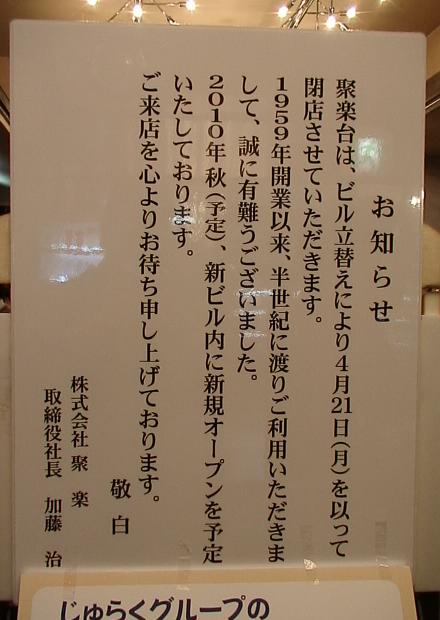 お知らせ
聚楽台は、ビル立替えにより4月21日(月)を以って
閉店させていただきます。
1959年開業以来、半世紀に渡りご利用いただきま
して、誠に有難うございました。
2010年秋(予定)、新ビル内に新規オープンを予定
いたしております。
ご来店を心よりお待ち申し上げております。
敬白
株式会社 聚楽
取締役社長 加藤 治
じゅらくグループの